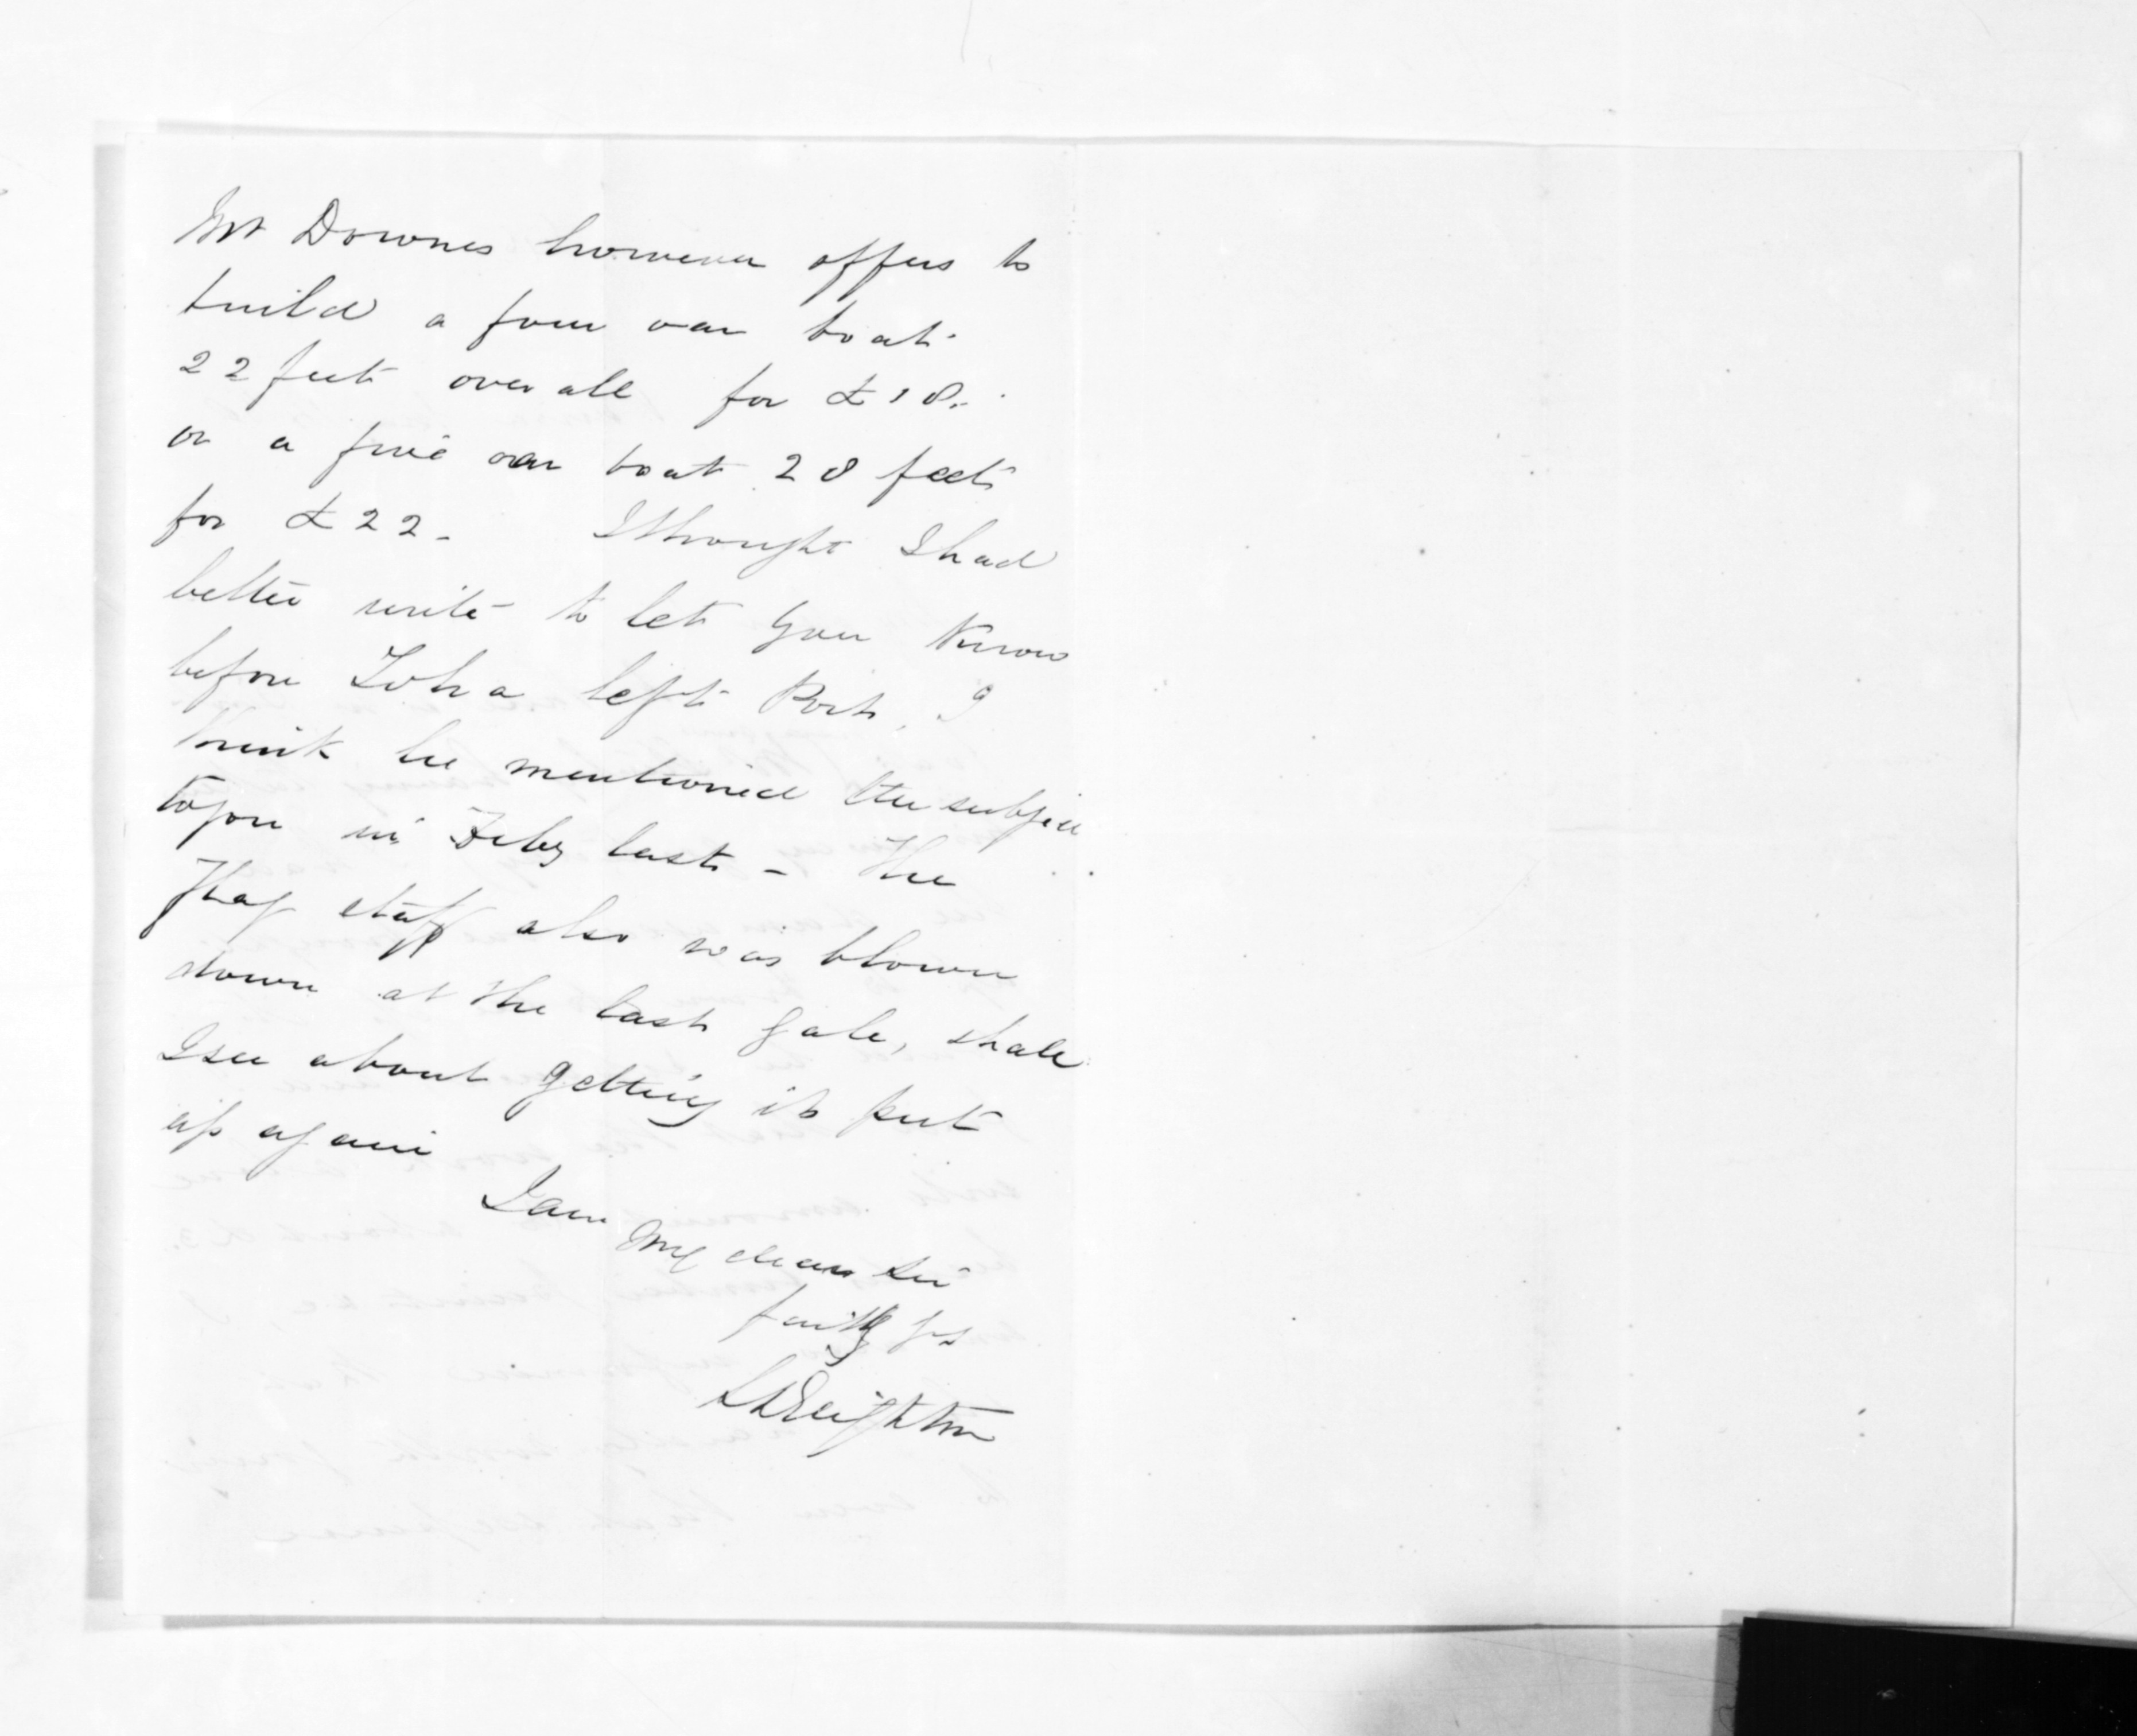 Mr Downes however offers to
build a four oar boat
22 feet over all for £18.
or a five oar boat 28 feet
for £22 - I thought I had
better write to let you know
before Toha left Port, I
think he mentioned the subject
to you in Feby last - The
Flag staff also was blown
down at the last gale, shall
I see about getting it put
up again
I am
My dear Sir
faithy Yrs
Deighton